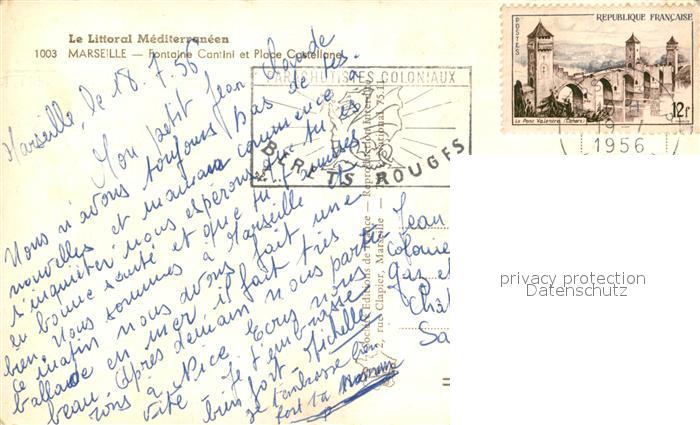 Le Littoral Méditerranéen
1003 MARSEILLE — Fontaine Cantini et Place Castellane
Marseille, le 18.7.56
Mon petit Jean Claude
Nous n'avons toujours pas de tes
nouvelles et maman commence à
s'inquiéter nous espérons que tu es
en bonne santé et que tu t'amuses
bien. Nous sommes à Marseille
Ce matin nous avons fait une
ballade en mer il fait très
beau. Après demain nous parti
rons à Nice Ecris nous
vite Je t'embrasse
bien fort Michelle
Je t'embrasse bien
fort ta maman
PARACHUTISTES COLONIAUX
BÉRETS ROUGES
Société Editions de France — Reproduction interdite
2, rue Clapier, Marseille —
REPUBLIQUE FRANÇAISE
POSTES
12f
Le Pont Valentré (Cahors)
19-7
1956
Jean
Colonie
Gaz et
Chât
Sa
privacy protection
Datenschutz